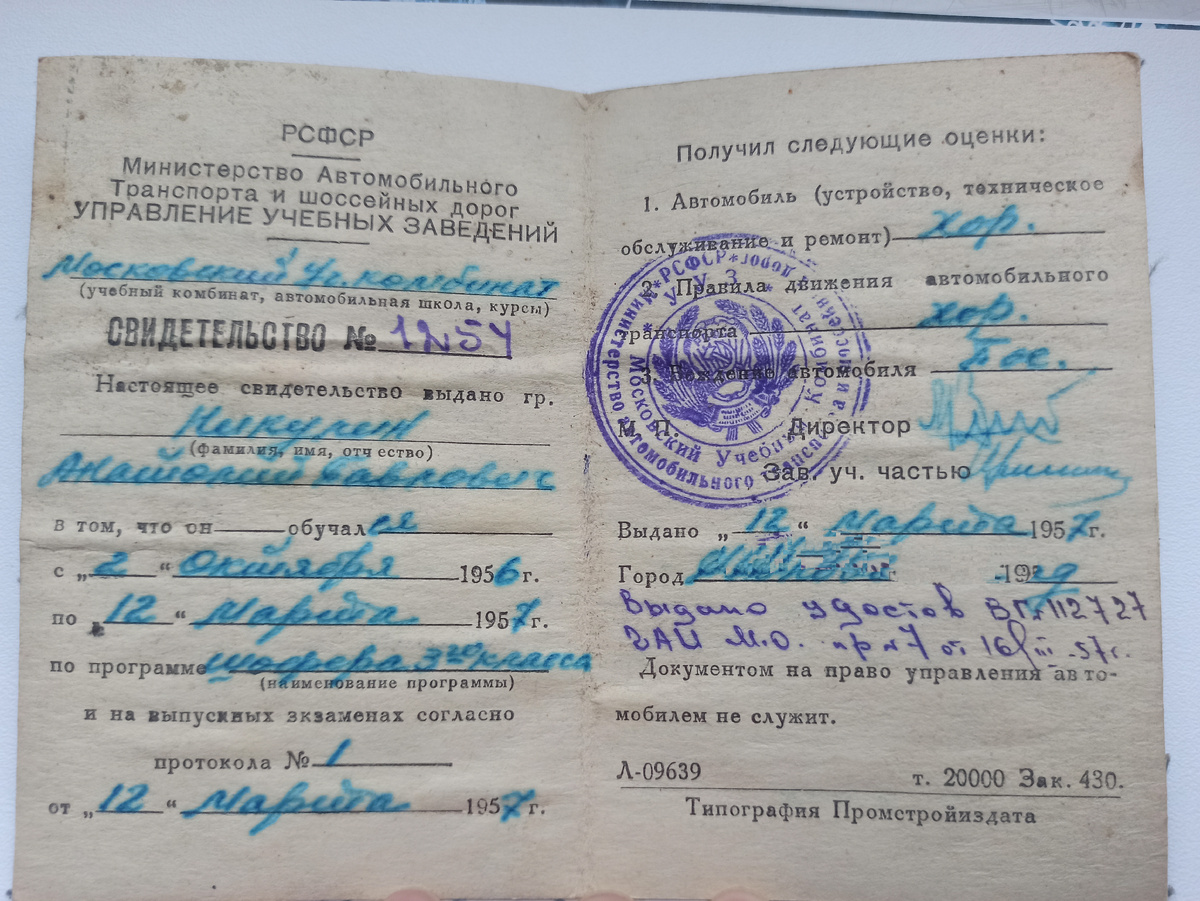 РСФСР
Министерство Автомобильного
Транспорта и шоссейных дорог
УПРАВЛЕНИЕ УЧЕБНЫХ ЗАВЕДЕНИЙ
Московский Уч. комбинат
(учебный комбинат, автомобильная школа, курсы)
СВИДЕТЕЛЬСТВО № 1257
Настоящее свидетельство выдано гр.
Никулин
(фамилия, имя, отчество)
Анатолий Павлович
в том, что он обучался
с „2“ Октября 1956 г.
по „12“ Марта 1957 г.
по программе шофера 3го класса
(наименование программы)
и на выпускных экзаменах согласно
протокола № 1
от „12“ Марта 1957 г.
Получил следующие оценки:
1. Автомобиль (устройство, техническое
обслуживание и ремонт) хор.
2. Правила движения автомобильного
транспорта хор.
3. Вождение автомобиля Пос.
М. П. Директор
Зав. уч. частью
Выдано „12“ Марта 1957 г.
Город
Выдано удостов ВГ №112727
ГАИ М.О. пр №7 от 16/III-57г.
Документом на право управления авто-
мобилем не служит.
Л-09639 т. 20000 Зак. 430.
Типография Промстройиздата
Министерство Автомобильного Транспорта и шоссейн дорог РСФСР
У У З
Московский Учебный Комбинат